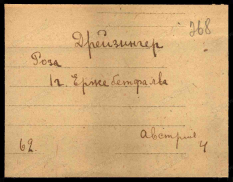 368
Дрейзингер
Роза
1г. Ержебетфалва
Австрия
62. 4